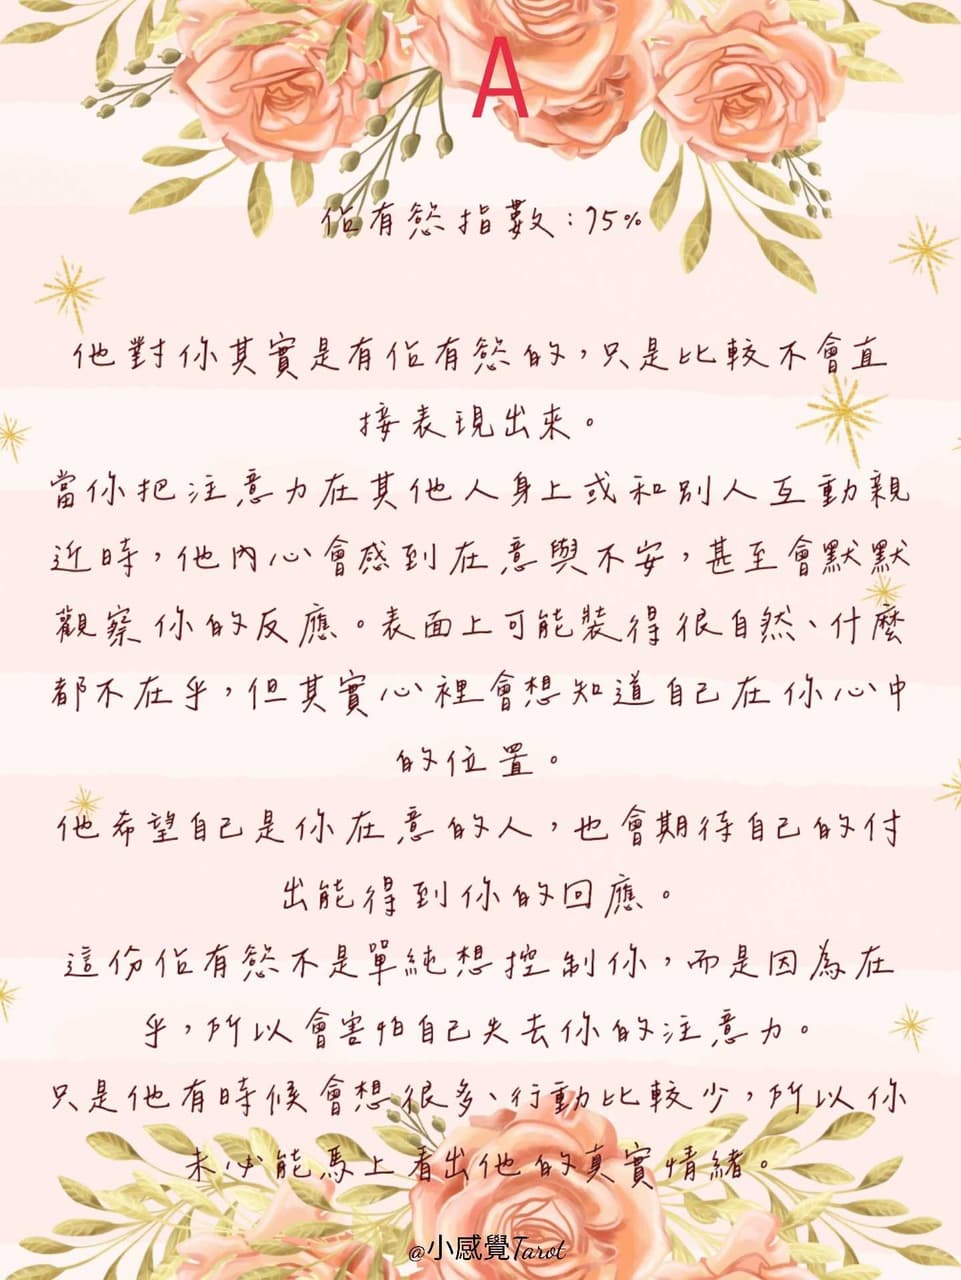 A
佔有慾指數：75%
他對你其實是有佔有慾的，只是比較不會直
接表現出來。
當你把注意力在其他人身上或和別人互動親
近時，他內心會感到在意與不安，甚至會默默
觀察你的反應。表面上可能裝得很自然、什麼
都不在乎，但其實心裡會想知道自己在你心中
的位置。
他希望自己是你在意的人，也會期待自己的付
出能得到你的回應。
這份佔有慾不是單純想控制你，而是因為在
乎，所以會害怕自己失去你的注意力。
只是他有時候會想很多、行動比較少，所以你
未必能馬上看出他的真實情緒。
@小感覺Tarot